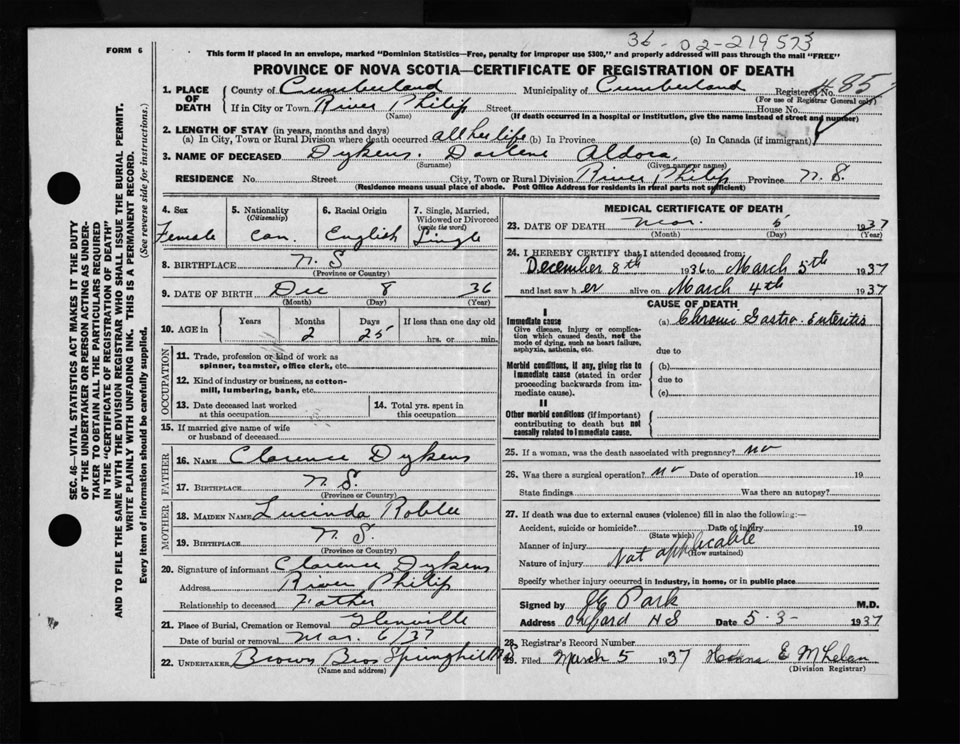 36-02-219573
FORM 6
This form if placed in an envelope, marked "Dominion Statistics—Free, penalty for improper use $300," and properly addressed will pass through the mail "FREE"
PROVINCE OF NOVA SCOTIA—CERTIFICATE OF REGISTRATION OF DEATH
SEC. 46—VITAL STATISTICS ACT MAKES IT THE DUTY
OF THE UNDERTAKER OR PERSON ACTING AS UNDER-
TAKER TO OBTAIN ALL THE PARTICULARS REQUIRED
IN THE "CERTIFICATE OF REGISTRATION OF DEATH"
AND TO FILE THE SAME WITH THE DIVISION REGISTRAR WHO SHALL ISSUE THE BURIAL PERMIT.
WRITE PLAINLY WITH UNFADING INK. THIS IS A PERMANENT RECORD.
Every item of information should be carefully supplied. (See reverse side for instructions.)
1. PLACE OF DEATH County of Cumberland Municipality of Cumberland Registered No. 485
(For use of Registrar General only)
If in City or Town River Philip Street House No.
(Name) (If death occurred in a hospital or institution, give the name instead of street and number)
2. LENGTH OF STAY (in years, months and days)
(a) In City, Town or Rural Division where death occurred all her life (b) In Province (c) In Canada (if immigrant)
3. NAME OF DECEASED Dykens, Darlene Aldora
(Surname) (Given name or names)
RESIDENCE No. Street City, Town or Rural Division River Philip Province N. S.
(Residence means usual place of abode. Post Office Address for residents in rural parts not sufficient)
4. Sex 5. Nationality (Citizenship) 6. Racial Origin 7. Single, Married, Widowed or Divorced (write the word)
Female Can. English Single
8. BIRTHPLACE N. S
(Province or Country)
9. DATE OF BIRTH Dec 8 36
(Month) (Day) (Year)
10. AGE in Years Months Days If less than one day old
2 25 hrs. or min.
OCCUPATION
11. Trade, profession or kind of work as
spinner, teamster, office clerk, etc.
12. Kind of industry or business, as cotton-
mill, lumbering, bank, etc.
13. Date deceased last worked
at this occupation
14. Total yrs. spent in
this occupation
15. If married give name of wife
or husband of deceased
FATHER
16. NAME Clarence Dykens
17. BIRTHPLACE N. S.
(Province or Country)
MOTHER
18. MAIDEN NAME Lucinda Roblee
19. BIRTHPLACE N. S.
(Province or Country)
20. Signature of informant Clarence Dykens
Address River Philip
Relationship to deceased Father
21. Place of Burial, Cremation or Removal Glenville
Date of burial or removal Mar. 6/37
22. UNDERTAKER Brown Bros Springhill
(Name and address)
MEDICAL CERTIFICATE OF DEATH
23. DATE OF DEATH Mar. 5 1937
(Month) (Day) (Year)
24. I HEREBY CERTIFY that I attended deceased from
December 8th 1936 to March 5th 1937
and last saw her alive on March 4th 1937
CAUSE OF DEATH
I
Immediate cause (a) Chronic Gastro-Enteritis
Give disease, injury or complica-
tion which caused death, not the
mode of dying, such as heart failure,
asphyxia, asthenia, etc.
due to
Morbid conditions, if any, giving rise to
immediate cause (stated in order
proceeding backwards from im-
mediate cause).
(b)
due to
(c)
II
Other morbid conditions (if important)
contributing to death but not
causally related to immediate cause.
25. If a woman, was the death associated with pregnancy? no
26. Was there a surgical operation? no Date of operation 19
State findings Was there an autopsy?
27. If death was due to external causes (violence) fill in also the following:—
Accident, suicide or homicide? Date of injury 19
(State which)
Manner of injury Not applicable
(How sustained)
Nature of injury
Specify whether injury occurred in industry, in home, or in public place
Signed by Park M.D.
Address Oxford NS Date 5-3- 1937
28. Registrar's Record Number
29. Filed March 5 1937 E
(Division Registrar)